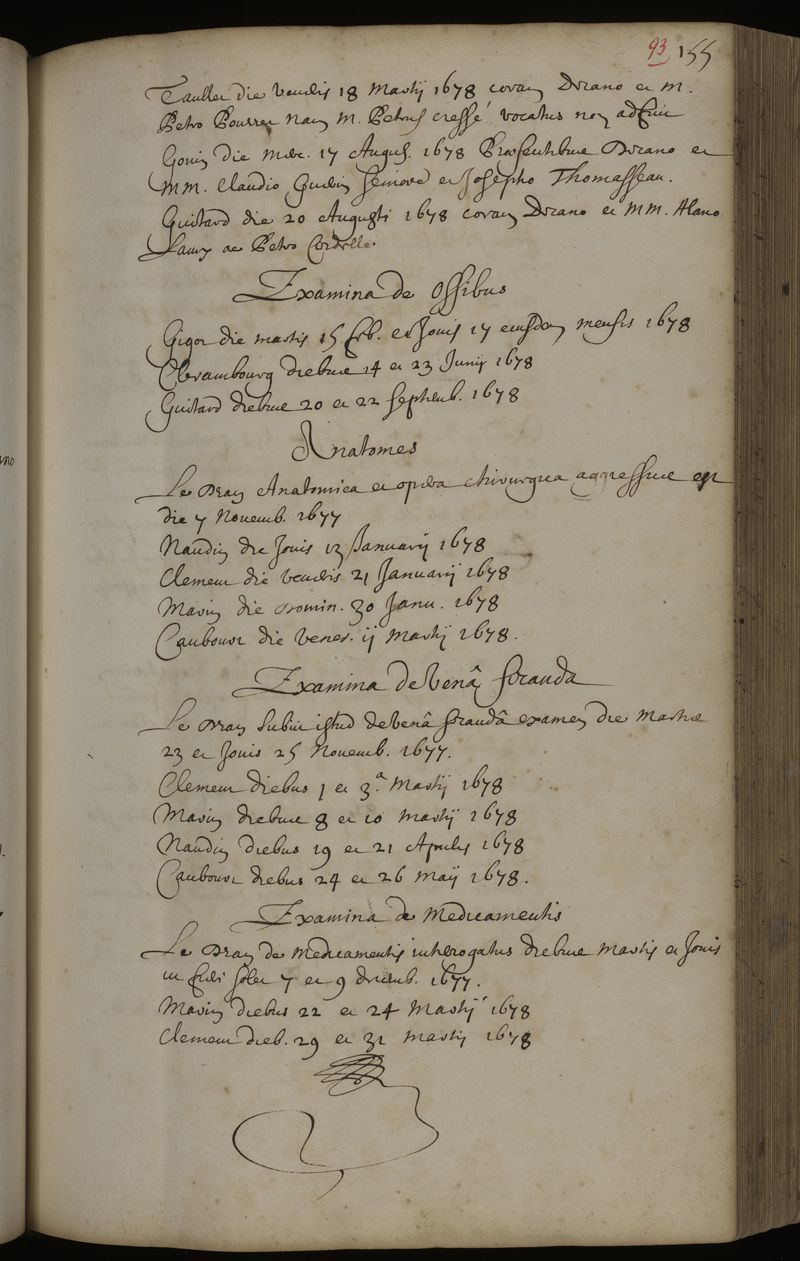 93 155
Tauller die veneris 18 Martij 1678 coram Decano et M.
Petro Bourree nam M. Petrus cressé vocatus non adfuit
Gouin die merc. 17 August. 1678 Præsentibus Decano et
MM. Claudio Guerin seniore et Josepho Thomasseau.
Guitard die 20 Augusti 1678 coram Decano et MM. Alano
Lamy ac Petro Cordelle.
Examina de Ossibus
Gigot die martis 15 feb. et Jovis 17 eiusdem mensis 1678
Clerambourg diebus 14 et 23 Junij 1678
Guitard diebus 20 et 22 septemb. 1678
Anatomes
Le Dran Anatomica et opera chirurgica aggressus est
die 7 Novemb. 1677
Naudin die Jovis 13 Januarij 1678
Clement die veneris 21 Januarij 1678
Marin die Domin. 30 Janu. 1678
Caubour die vener. ij Martij 1678.
Examina de venâ secanda
Le Dran subiit istud de venâ secandâ examen die Martis
23 et Jovis 25 Novemb. 1677.
Clement diebus 1 et 3.a Martij 1678
Marin diebus 8 et 10 Martij 1678
Naudin diebus 19 et 21 Aprilis 1678
Caubour diebus 24 et 26 Maij 1678.
Examina de Medicamentis
Le Dran de Medicamentis interogatus diebus Martis et Jovis
7 et 9 decemb. 1677.
Marin diebus 22 et 24 Martij 1678
Clement dieb. 29 et 31 Martij 1678